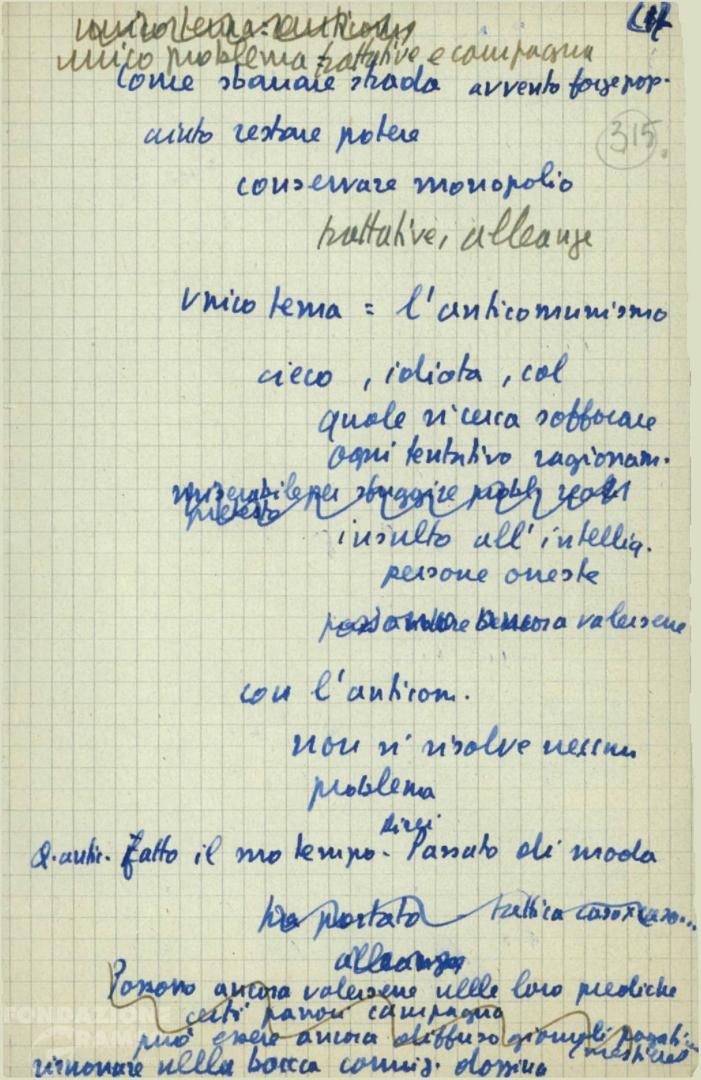 unico tema = l'anticom
unico problema = trattative e campagna
Come sbarrare strada avvento forze pop.
aiuto restare potere
315
conservare monopolio
trattative, alleanze
Unico tema = l'anticomunismo
cieco, idiota, col
quale si cerca soffocare
ogni tentativo ragionam.
miserabile per sfuggire probl. reali
pretesto
insulto all'intellig.
persone oneste
ancora valersene
con l'anticom.
non si risolve nessun
problema
direi
Q. antic. Fatto il suo tempo. Passato di moda
ha portato tattica caso x caso...
alleanza
Possono ancora valersene nelle loro prediche
certi parroci campagna
può essere ancora diffuso giornali pagati
risuonare nella bocca comiz. dozzina
FONDAZIONE